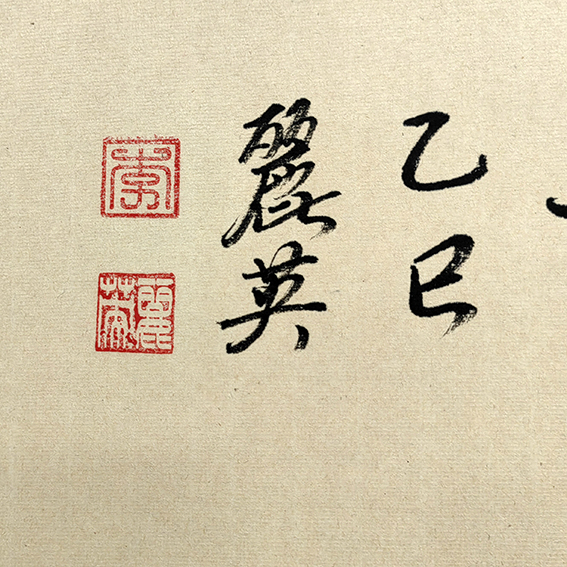 乙巳
麗英
李
麗英